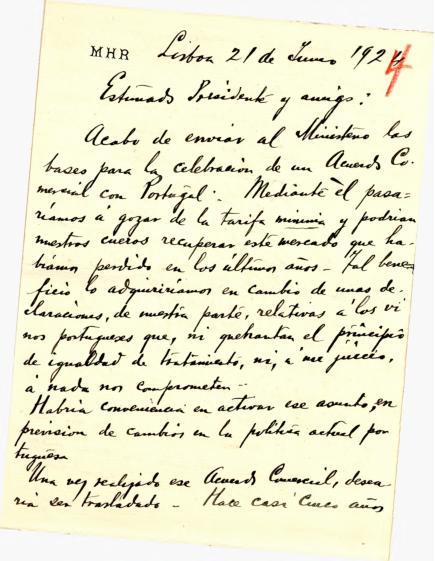 MHR Lisboa 21 de Junio 1924
4
Estimado Presidente y amigo:
Acabo de enviar al Ministerio las
bases para la celebracion de un Acuerdo Co-
mercial con Portugal. Mediante él pasa-
riamos á gozar de la tarifa minima y podrian
nuestros cueros recuperar este mercado que ha-
biamos perdido en los últimos años - Tal bene-
ficio lo adquiririamos en cambio de unas de-
claraciones, de nuestra parte, relativas á los vi
nos portugueses que, ni quebrantan el principio
de igualdad de tratamiento, ni, á mi juicio,
á nada nos comprometen -
Habria conveniencia en activar ese asunto, en
prevision de cambios en la politica actual por
tuguesa
Una vez realizado ese Acuerdo Comercial, desea
ria ser trasladado - Hace casi cinco años